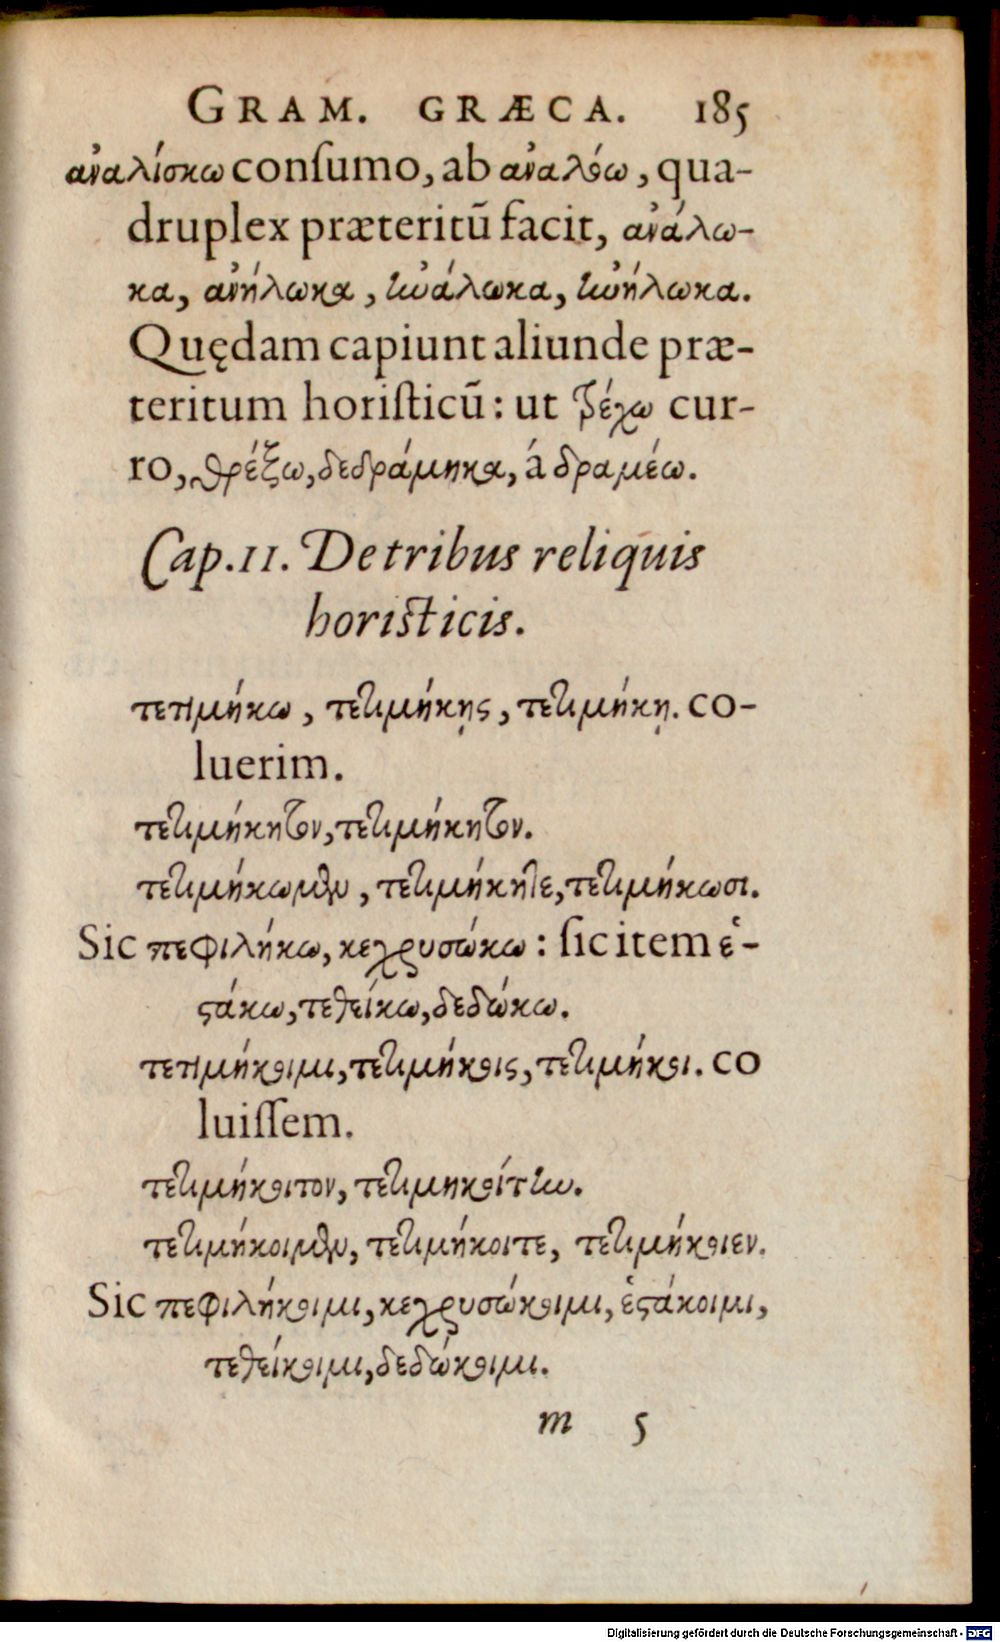 GRAM. GRÆCA. 185
ἀναλίσκω conſumo, ab ἀναλόω, qua-
druplex præteritū facit, ἀνάλω-
κα, ἀνήλωκα, ἠνάλωκα, ἠνήλωκα.
Quędam capiunt aliunde præ-
teritum horiſticū: ut τρέχω cur-
ro, θρέξω, δεδράμηκα, á δραμέω.
Cap. 11. De tribus reliquis
horisticis.
τετιμήκω, τετιμήκῃς, τετιμήκῃ. co-
luerim.
τετιμήκητον, τετιμήκητον.
τετιμήκωμεν, τετιμήκητε, τετιμήκωσι.
Sic πεφιλήκω, κεχρυσώκω: ſic item ἑ-
ςάκω, τεθείκω, δεδώκω.
τετιμήκοιμι, τετιμήκοις, τετιμήκοι. co
luiſſem.
τετιμήκοιτον, τετιμηκοίτην.
τετιμήκοιμεν, τετιμήκοιτε, τετιμήκοιεν.
Sic πεφιλήκοιμι, κεχρυσώκοιμι, ἑςάκοιμι,
τεθείκοιμι, δεδώκοιμι.
m 5
Digitalisierung gefördert durch die Deutsche Forschungsgemeinschaft - DFG